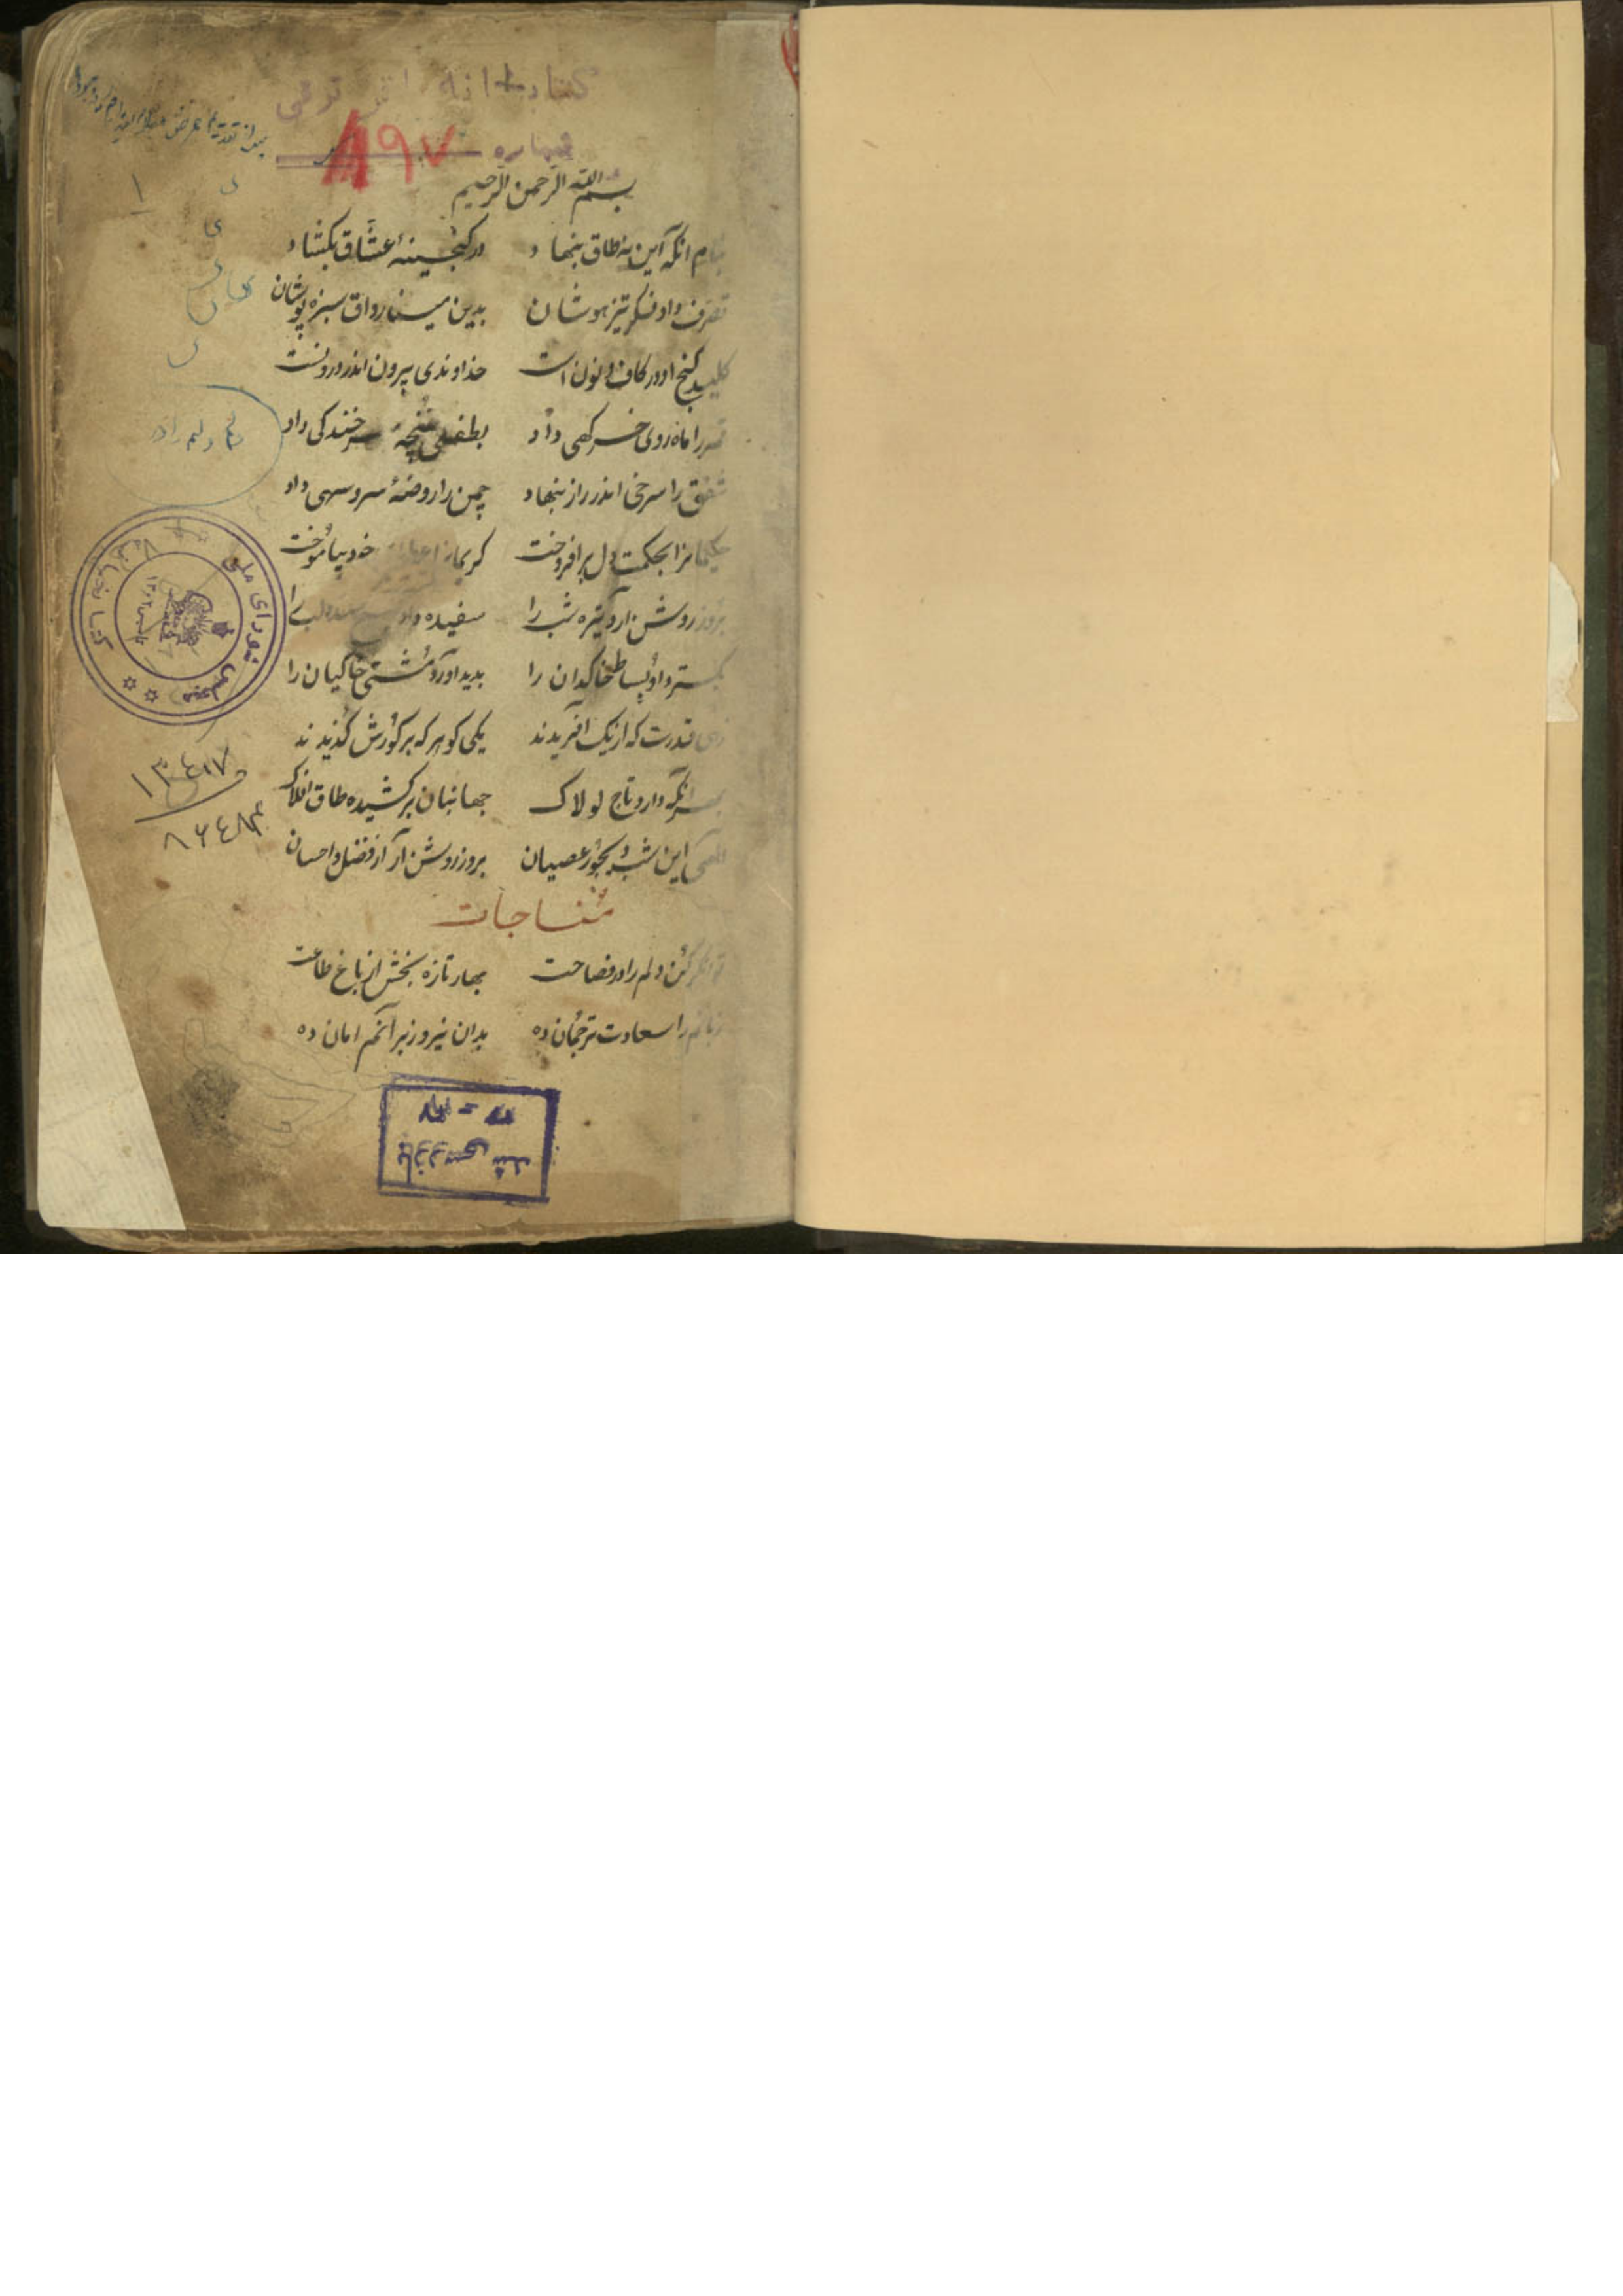 کتابخانه
شماره ۸۹۷
۱
بسم الله الرحمن الرحیم
بنام انکه این نه طاق بنهاد در کنجینهٔ عشّاق بکشاد
تصرف داد فکر تیز هوشان بدین مینا رواق سبزه پوشان
کلید کنج او در کاف و نون است خداوندی بیرون اندرونست
قمر را ماه روی خرکهی داد بطفل غنچهٔ خندکی داد
شفق را سرخی اندر راز بنهاد چمن را روضهٔ سرو سهی داد
حکیمانرا بحکمت دل برافروخت کریمانرا خود بیاموخت
بروز روشن آرد تیره شب را سفیده داد
بکسترد او بساط خاکدان را بدید آورد مشتی خاکیان را
زهی قدرت که از یک آفریدند یکی کوهر که بر کورش کزیدند
بسر آنکه دارد تاج لولاک جهانبان برکشیده طاق افلاک
الهی این شب دیجور عصیان بروز روشن آر از فضل و احسان
مناجات
توانکر کن دلم را در فصاحت بهار تازه بخش از باغ طاعت
زبانم را سعادت ترجمان ده بدان نیروز امان ده
کتابخانه مجلس شورای ملی
۱۳۴۱۷
۸۶۴۸۳
بازرسی شد
۳۶ - ۳۷